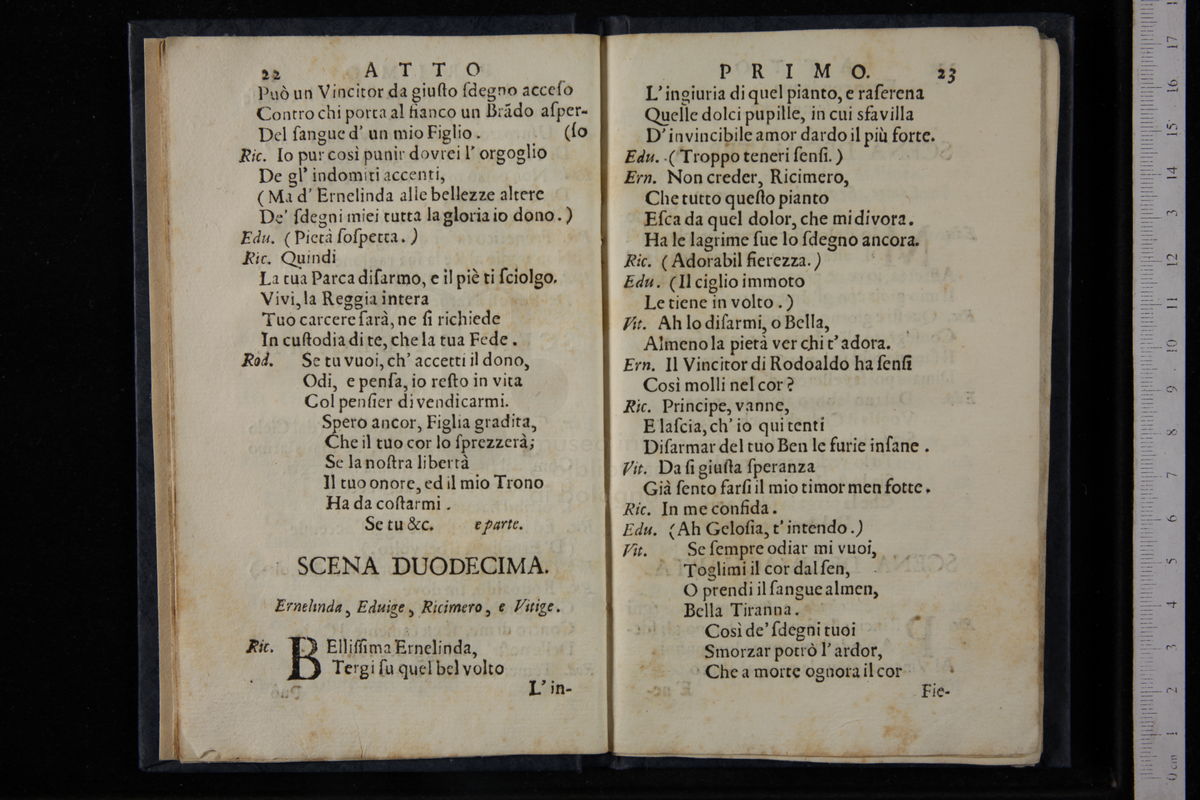 22 ATTO
Può un Vincitor da giuſto ſdegno acceſo
Contro chi porta al fianco un Brãdo aſper-
Del ſangue d' un mio Figlio. (ſo
Ric. Io pur così punir dovrei l' orgoglio
De gl' indomiti accenti,
(Ma d' Ernelinda alle bellezze altere
De' ſdegni miei tutta la gloria io dono.)
Edu. (Pietà ſoſpetta.)
Ric. Quindi
La tua Parca diſarmo, e il piè ti ſciolgo.
Vivi, la Reggia intera
Tuo carcere ſarà, ne ſi richiede
In cuſtodia di te, che la tua Fede.
Rod. Se tu vuoi, ch' accetti il dono,
Odi, e penſa, io reſto in vita
Col penſier di vendicarmi.
Spero ancor, Figlia gradita,
Che il tuo cor lo ſprezzerà;
Se la noſtra libertà
Il tuo onore, ed il mio Trono
Ha da coſtarmi.
Se tu &c. e parte.
SCENA DUODECIMA.
Ernelinda, Eduige, Ricimero, e Vitige.
Ric. BElliſſima Ernelinda,
Tergi ſu quel bel volto
L' in-
PRIMO. 23
L' ingiuria di quel pianto, e raſerena
Quelle dolci pupille, in cui sfavilla
D' invincibile amor dardo il più forte.
Edu. (Troppo teneri ſenſi.)
Ern. Non creder, Ricimero,
Che tutto queſto pianto
Eſca da quel dolor, che mi divora.
Ha le lagrime ſue lo ſdegno ancora.
Ric. (Adorabil fierezza.)
Edu. (Il ciglio immoto
Le tiene in volto.)
Vit. Ah lo diſarmi, o Bella,
Almeno la pietà ver chi t' adora.
Ern. Il Vincitor di Rodoaldo ha ſenſi
Così molli nel cor?
Ric. Principe, vanne,
E laſcia, ch' io qui tenti
Diſarmar del tuo Ben le furie inſane.
Vit. Da ſi giuſta ſperanza
Già ſento farſi il mio timor men fotte.
Ric. In me confida.
Edu. (Ah Geloſia, t' intendo.)
Vit. Se ſempre odiar mi vuoi,
Toglimi il cor dal ſen,
O prendi il ſangue almen,
Bella Tiranna.
Così de' ſdegni tuoi
Smorzar potrò l' ardor,
Che a morte ognora il cor
Fie-